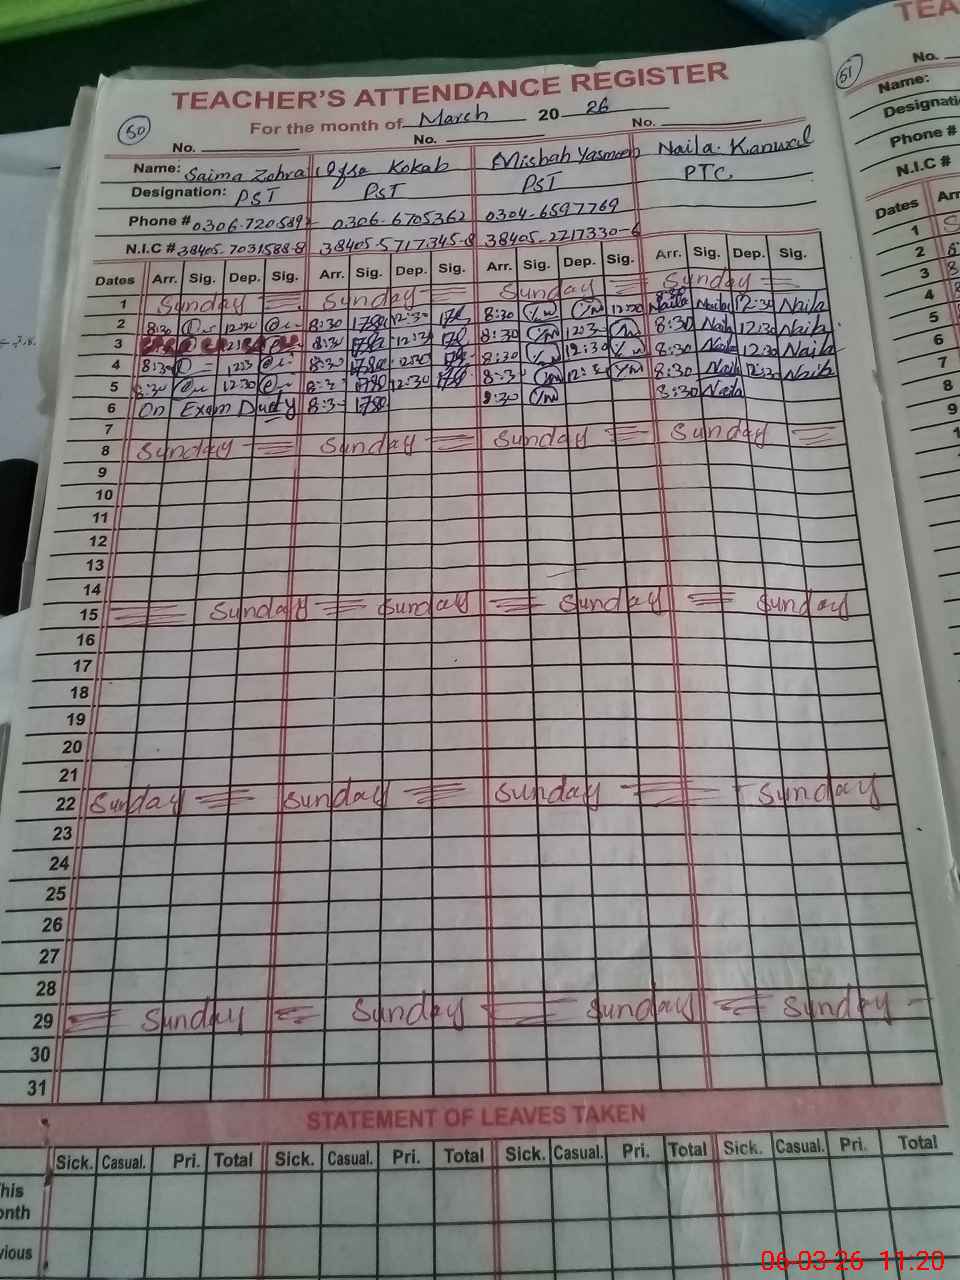 TEACHER'S ATTENDANCE REGISTER
50
For the month of March 20 26
No. No. No.
Name: Saima Zohra Iqsa Kokab Misbah Yasmeen Naila Kanwal
Designation: PST PST PST PTC
Phone # 0306-6705362 0304-6597769
N.I.C # 38405-7031588-8 38405-5717345-8 38405-2717330-6
Dates Arr. Sig. Dep. Sig. Arr. Sig. Dep. Sig. Arr. Sig. Dep. Sig. Arr. Sig. Dep. Sig.
1 Sunday Sunday Sunday Sunday
2 8:30 8:30 12:30 8:30 12:30 8:30 Naila Naila 12:30 Naila
3 8:30 12:30 8:30 12:30 8:30 Naila 12:30 Naila
4 8:30 8:30 12:30 8:30 12:30 8:30 Naila 12:30 Naila
5 8:30 12:30 8:30 12:30 8:30 8:30 Naila 12:30 Naila
6 On Exam Duty 8:30 8:30 8:30 Naila
7
8 Sunday Sunday Sunday Sunday
9
10
11
12
13
14
15 Sunday Sunday Sunday Sunday
16
17
18
19
20
21
22 Sunday Sunday Sunday Sunday
23
24
25
26
27
28
29 Sunday Sunday Sunday Sunday
30
31
STATEMENT OF LEAVES TAKEN
Sick. Casual. Pri. Total Sick. Casual. Pri. Total Sick. Casual. Pri. Total Sick. Casual. Pri. Total
his
onth
vious
51
TEA
No.
Name:
Designati
Phone #
N.I.C #
Dates Arr
1
2
3
4
5
6
7
8
9
06-03-26 11:20